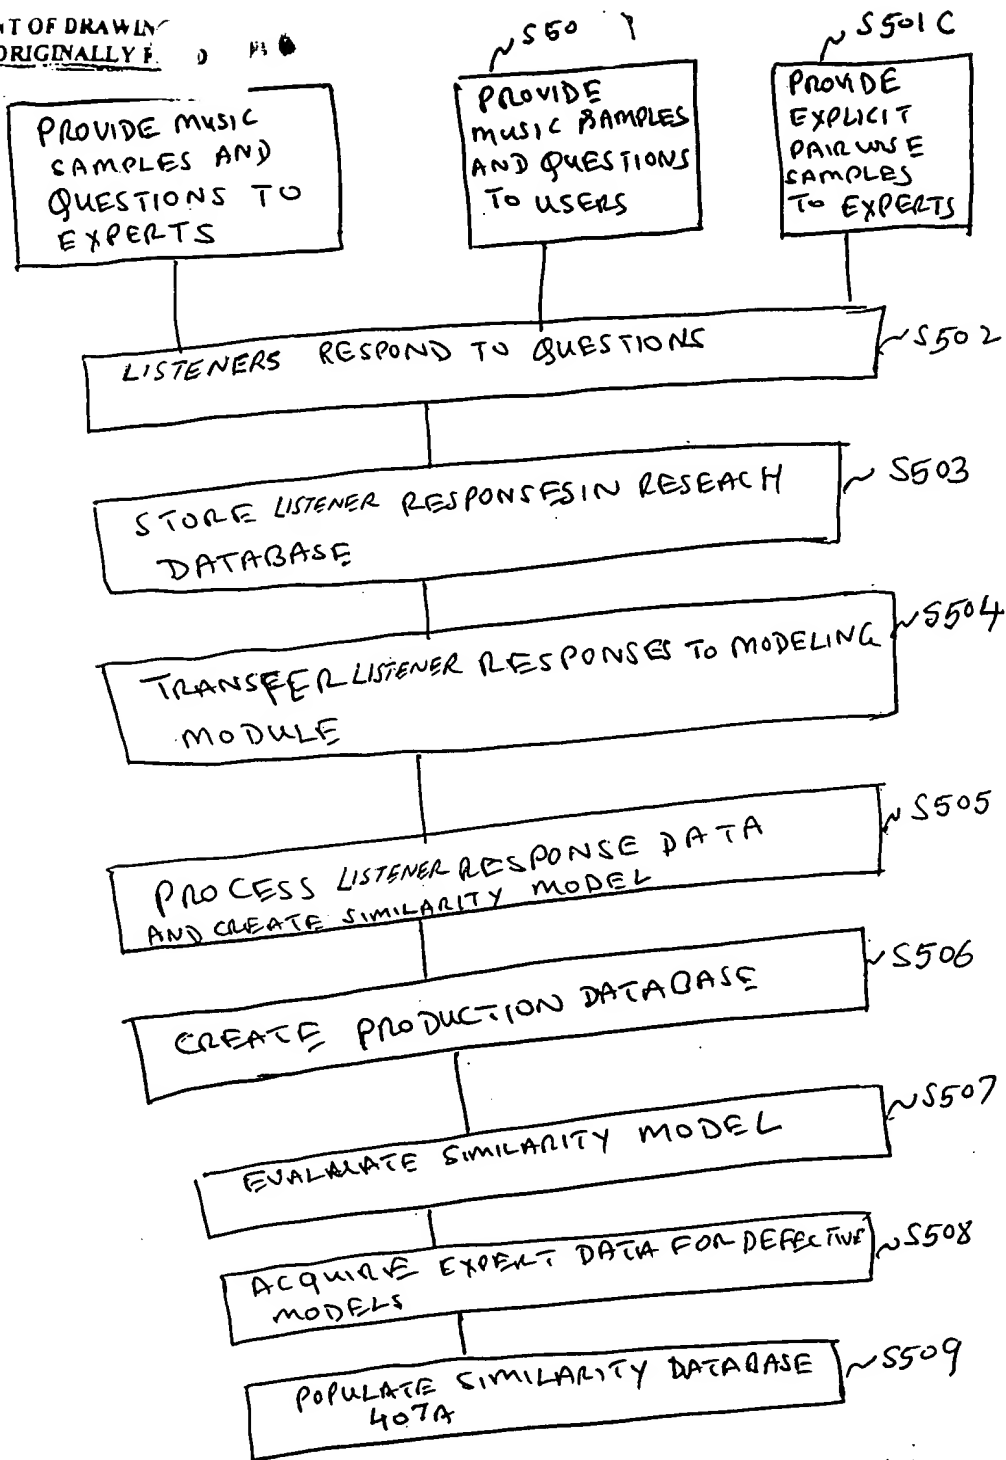 NT OF DRAWIN
ORIGINALLY F
S501C
PROVIDE MUSIC
SAMPLES AND
QUESTIONS TO
EXPERTS
S50
PROVIDE
MUSIC SAMPLES
AND QUESTIONS
TO USERS
PROVIDE
EXPLICIT
PAIRWISE
SAMPLES
TO EXPERTS
LISTENERS RESPOND TO QUESTIONS
S502
STORE LISTENER RESPONSES IN RESEACH
DATABASE
S503
TRANSFER LISTENER RESPONSES TO MODELING
MODULE
S504
PROCESS LISTENER RESPONSE DATA
AND CREATE SIMILARITY MODEL
S505
CREATE PRODUCTION DATABASE
S506
EVALALATE SIMILARITY MODEL
S507
ACQUIRE EXPERT DATA FOR DEFECTIVE
MODELS
S508
POPULATE SIMILARITY DATABASE
407A
S509